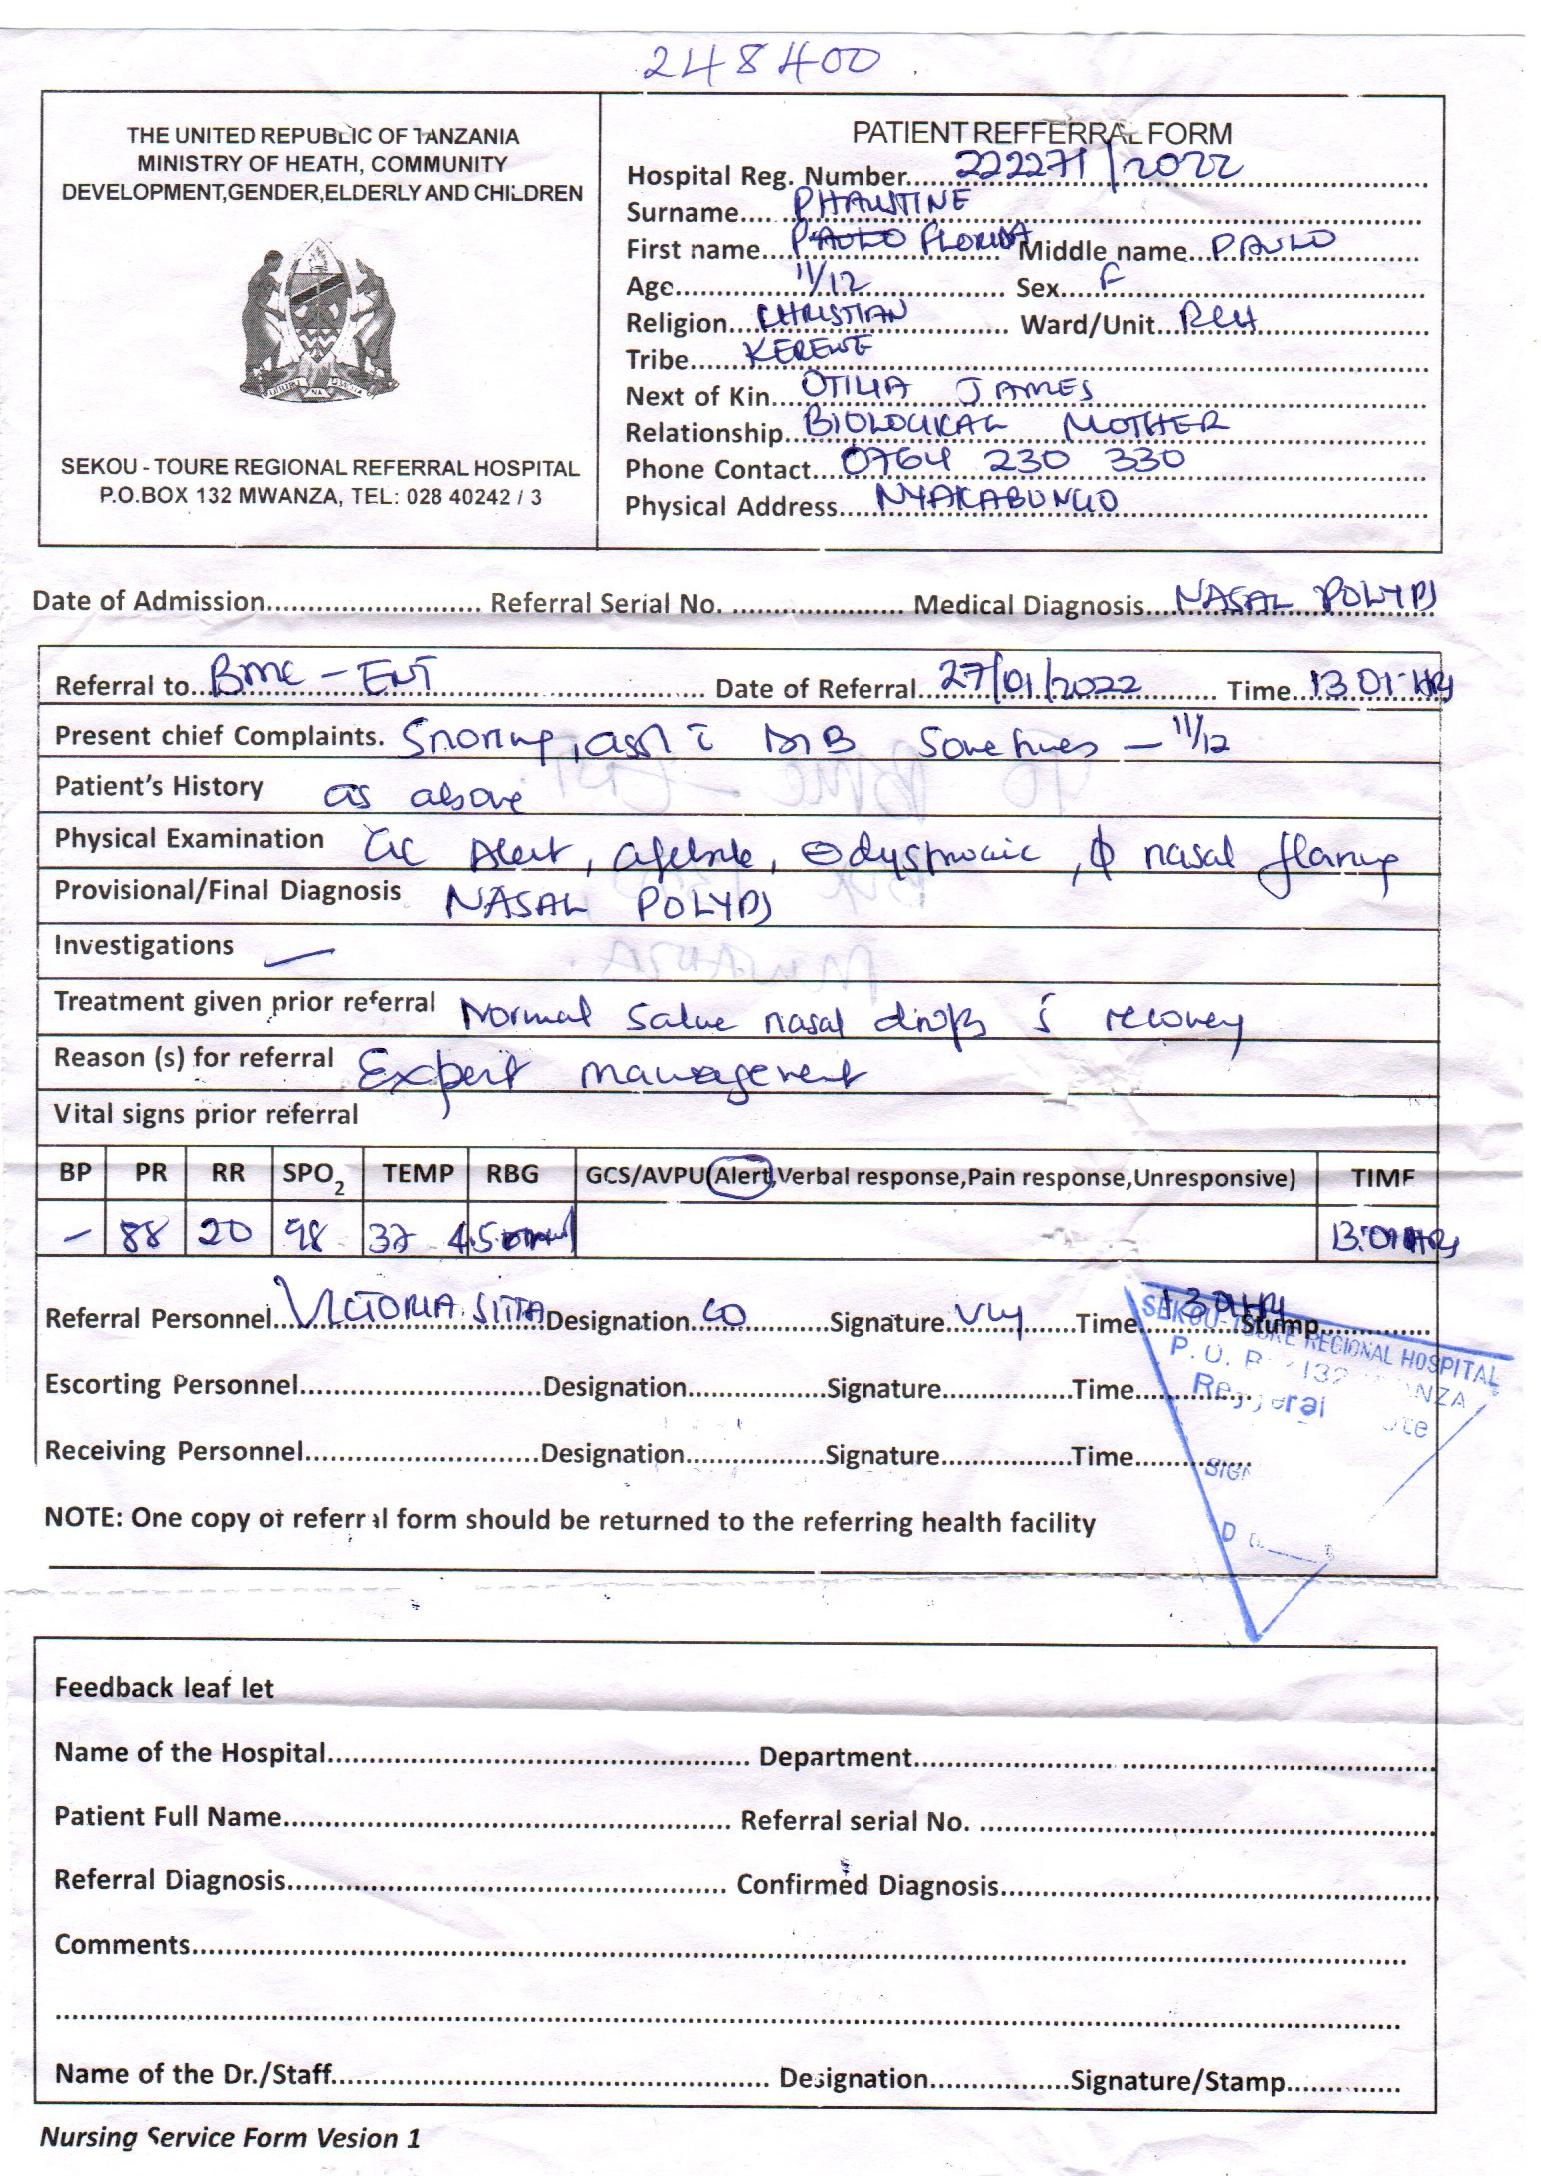 248400
THE UNITED REPUBLIC OF TANZANIA
MINISTRY OF HEATH, COMMUNITY
DEVELOPMENT,GENDER,ELDERLY AND CHILDREN
SEKOU - TOURE REGIONAL REFERRAL HOSPITAL
P.O.BOX 132 MWANZA, TEL: 028 40242 / 3
PATIENT REFFERRAL FORM
Hospital Reg. Number....222271/2022
Surname....PHAUSTINE
First name....PAULO FLORIDA Middle name....PAULO
Age....11/12 Sex....F
Religion....CHRISTIAN Ward/Unit....RCH
Tribe....KEREWE
Next of Kin....OTILIA JAMES
Relationship....BIOLOGICAL MOTHER
Phone Contact....0764 230 330
Physical Address....NYAKABUNGO
Date of Admission.... Referral Serial No. .... Medical Diagnosis....NASAL POLYPS
Referral to....BMC - ENT Date of Referral....27/01/2022 Time....13:01 HRS
Present chief Complaints. Snoring, ass c̄ DIB Sometimes - 11/12
Patient's History as above
Physical Examination GC Alert, afebrile, ⊖dyspnoeic, nasal flaring
Provisional/Final Diagnosis NASAL POLYPS
Investigations —
Treatment given prior referral Normal Saline nasal drops s̄ recovery
Reason (s) for referral Expert management
Vital signs prior referral
BP PR RR SPO2 TEMP RBG GCS/AVPU(Alert,Verbal response,Pain response,Unresponsive) TIME
— 88 20 98 37 4.5 13:01HRS
Referral Personnel....VICTORIA SITTA Designation....CO Signature.... Time....13:01HRS Stump....
Escorting Personnel.... Designation.... Signature.... Time....
Receiving Personnel.... Designation.... Signature.... Time....
SEKOU-TOURE REGIONAL HOSPITAL
P.O. B 132
NOTE: One copy of referral form should be returned to the referring health facility
Feedback leaf let
Name of the Hospital.... Department....
Patient Full Name.... Referral serial No. ....
Referral Diagnosis.... Confirmed Diagnosis....
Comments....
Name of the Dr./Staff.... Designation.... Signature/Stamp....
Nursing Service Form Vesion 1